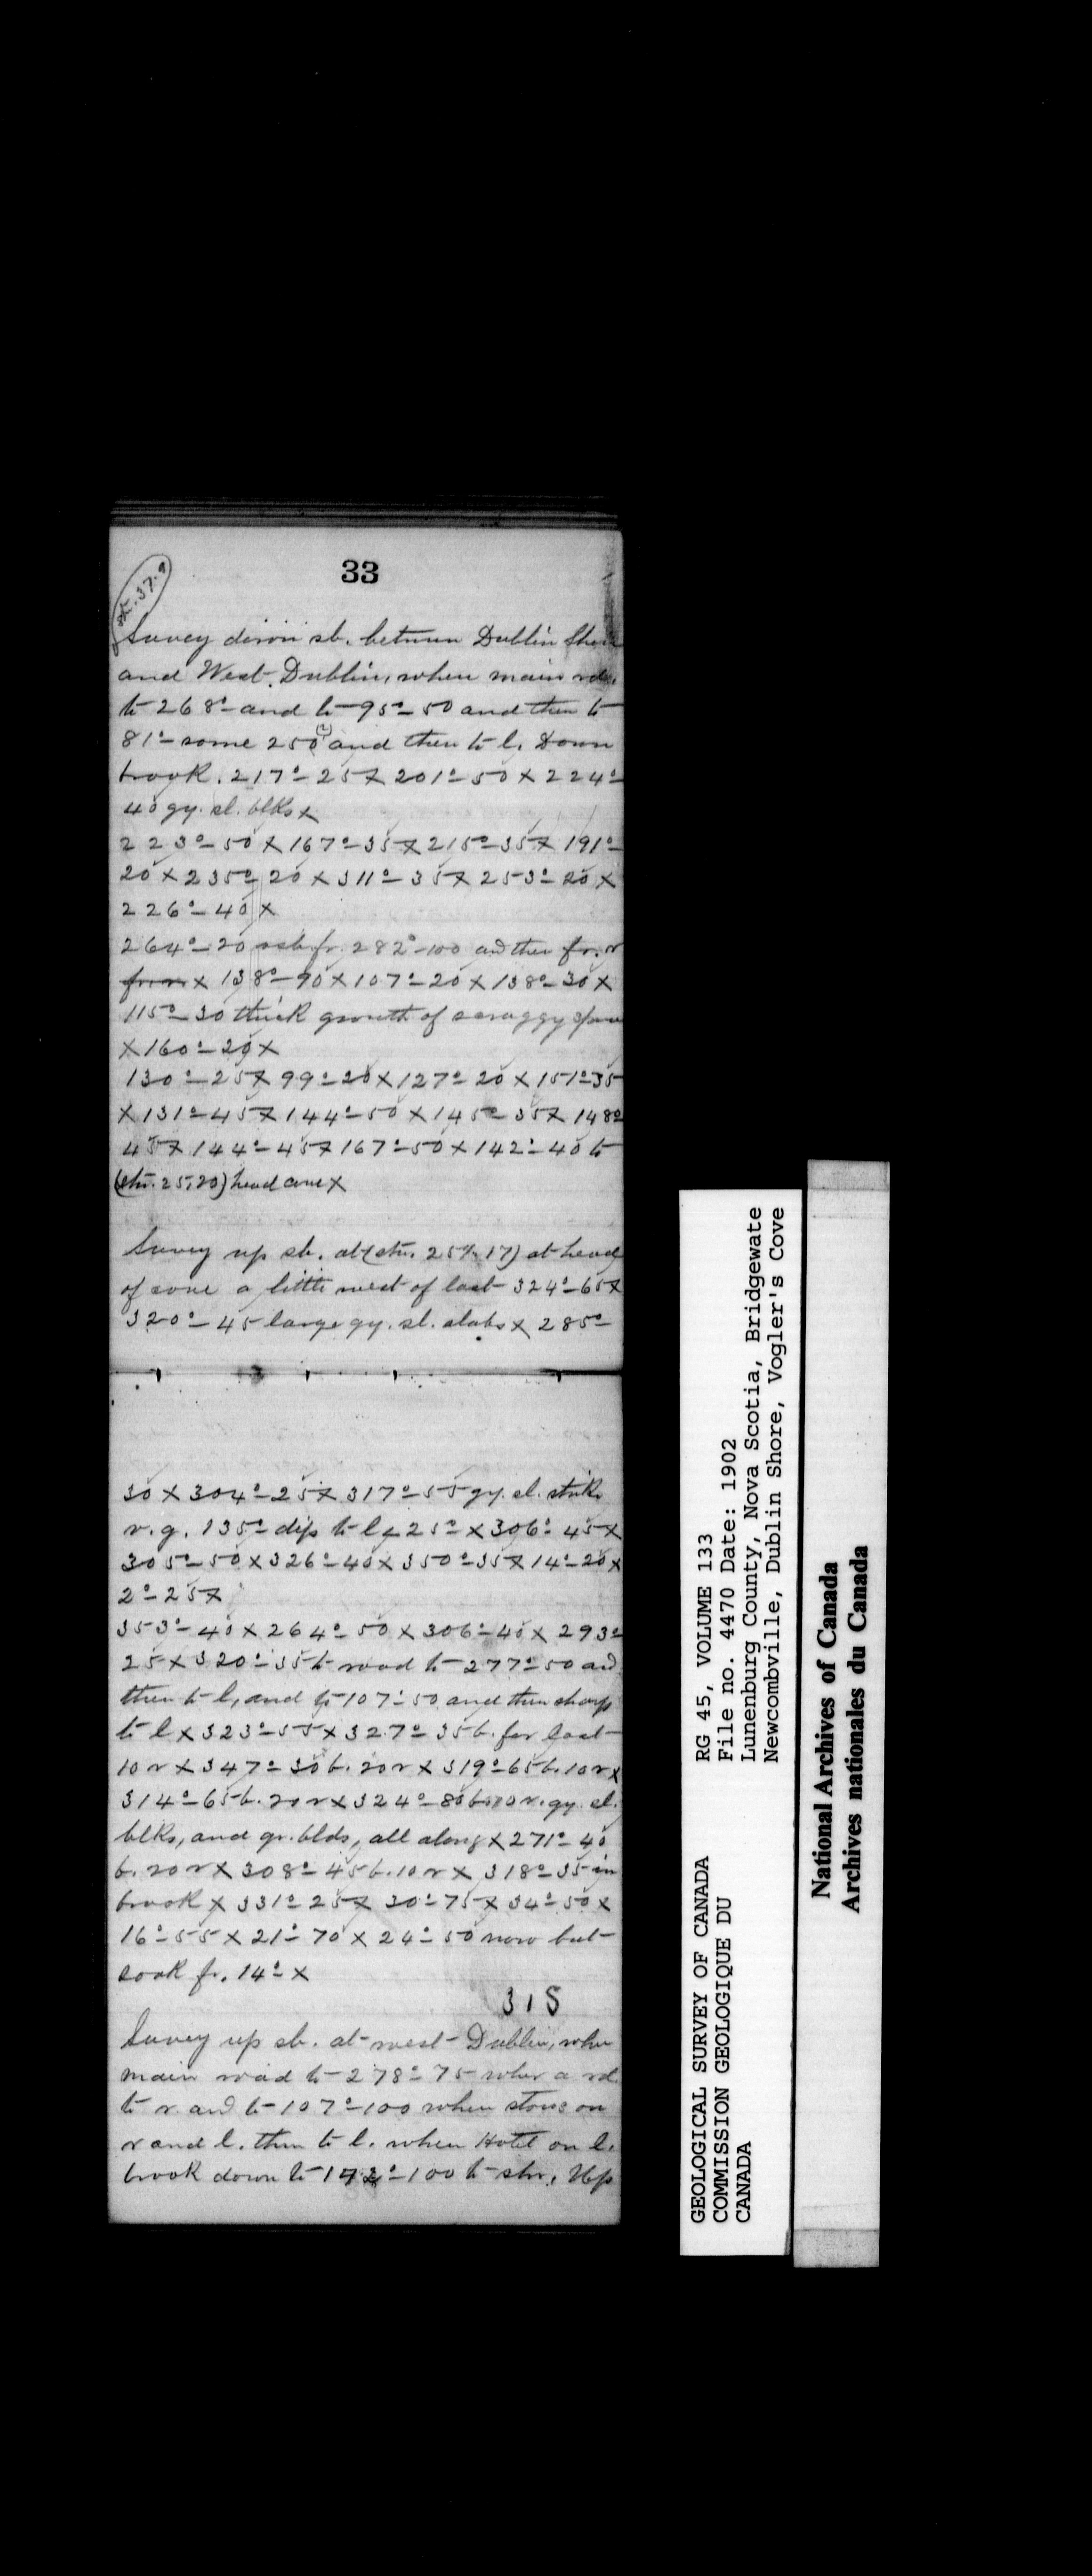 33
str. 37.9
Survey down sb. between Dublin Shore
and West Dublin, when main rd.
to 268°- and to 95°-50 and then to
81°- some 250 and then to l. Down
brook. 217°-25 x 201°-50 x 224°-
40 gy. sl. blks x
223°-50 x 167°-35 x 215°-35 x 191°-
20 x 235°-20 x 311°-35 x 253°-20 x
226°-40 x
264°-20 fr. 282°-100 and then fr. r
x 138°-90 x 107°-20 x 138°-30 x
115°-30 thick growth of scraggy spruce
x 160°-20 x
130°-25 x 99°-20 x 127°-20 x 151°-35
x 131°-45 x 144°-50 x 145°-35 x 148°-
45 x 144°-45 x 167°-50 x 142°-40 to
(str. 25.20) head cove x
Survey up sb. at (str. 25.17) at head
of cove a little west of last 324°-65 x
320°-45 large gy. sl. slabs x 285°-
30 x 304°-25 x 317°-55 gy. sl. strike
v.g. 135°- dip to l < 25°- x 306°-45 x
305°-50 x 326°-40 x 350°-35 x 14°-20 x
2°-25 x
353°-40 x 264°-50 x 306°-40 x 293°-
25 x 320°-35 to road to 277°-50 and
then to l, and to 107°-50 and then sharp
to l x 323°-55 x 327°-35 b. for last
10 r x 347°-30 b. 20 r x 319°-65 b. 10 r x
314°-65 b. 20 r x 324°-80 b. 10 r. gy. sl.
blks, and gr. blds, all along x 271°-40
b. 20 r x 308°-45 b. 10 r x 318°-35 in
brook x 331°-25 x 30°-75 x 34°-50 x
16°-55 x 21°-70 x 24°-50 now but
soak fr. 14°- x
315
Survey up sb. at west Dublin, when
main road to 278°-75 when a rd.
to r. and to 107°-100 when store on
r and l. then to l. when Hotel on l.
brook down to 142°-100 to shr. Up
GEOLOGICAL SURVEY OF CANADA
COMMISSION GEOLOGIQUE DU
CANADA
RG 45, VOLUME 133
File no. 4470 Date: 1902
Lunenburg County, Nova Scotia, Bridgewate
Newcombville, Dublin Shore, Vogler's Cove
National Archives of Canada
Archives nationales du Canada